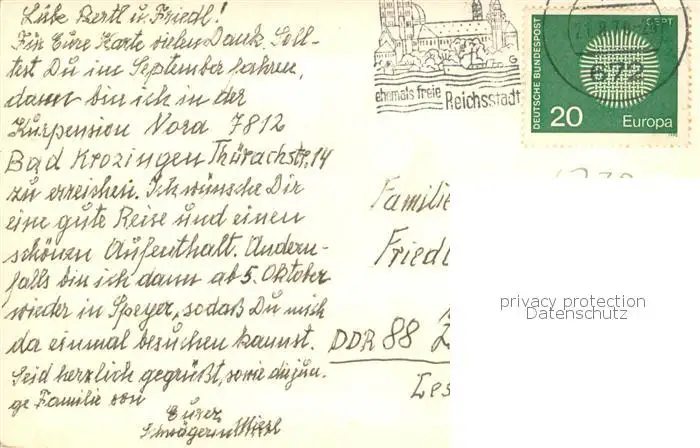 Liebe Bertl u. Friedl!
Für Eure Karte vielen Dank. Soll-
test Du im September fahren,
dann bin ich in der
Kurpension Nora 7812
Bad Krozingen Thürachstr. 14
zu erreichen. Ich wünsche Dir
eine gute Reise und einen
schönen Aufenthalt. Andern-
falls bin ich dann ab 5. Oktober
wieder in Speyer, sodaß Du mich
da einmal besuchen kannst.
Seid herzlich gegrüßt, sowie die jun-
ge Familie von
Eurer
Schwägerin
ehemals freie Reichsstadt
DEUTSCHE BUNDESPOST
CEPT
672
20 Europa
Familie
Friedl
DDR 88
privacy protection
Datenschutz